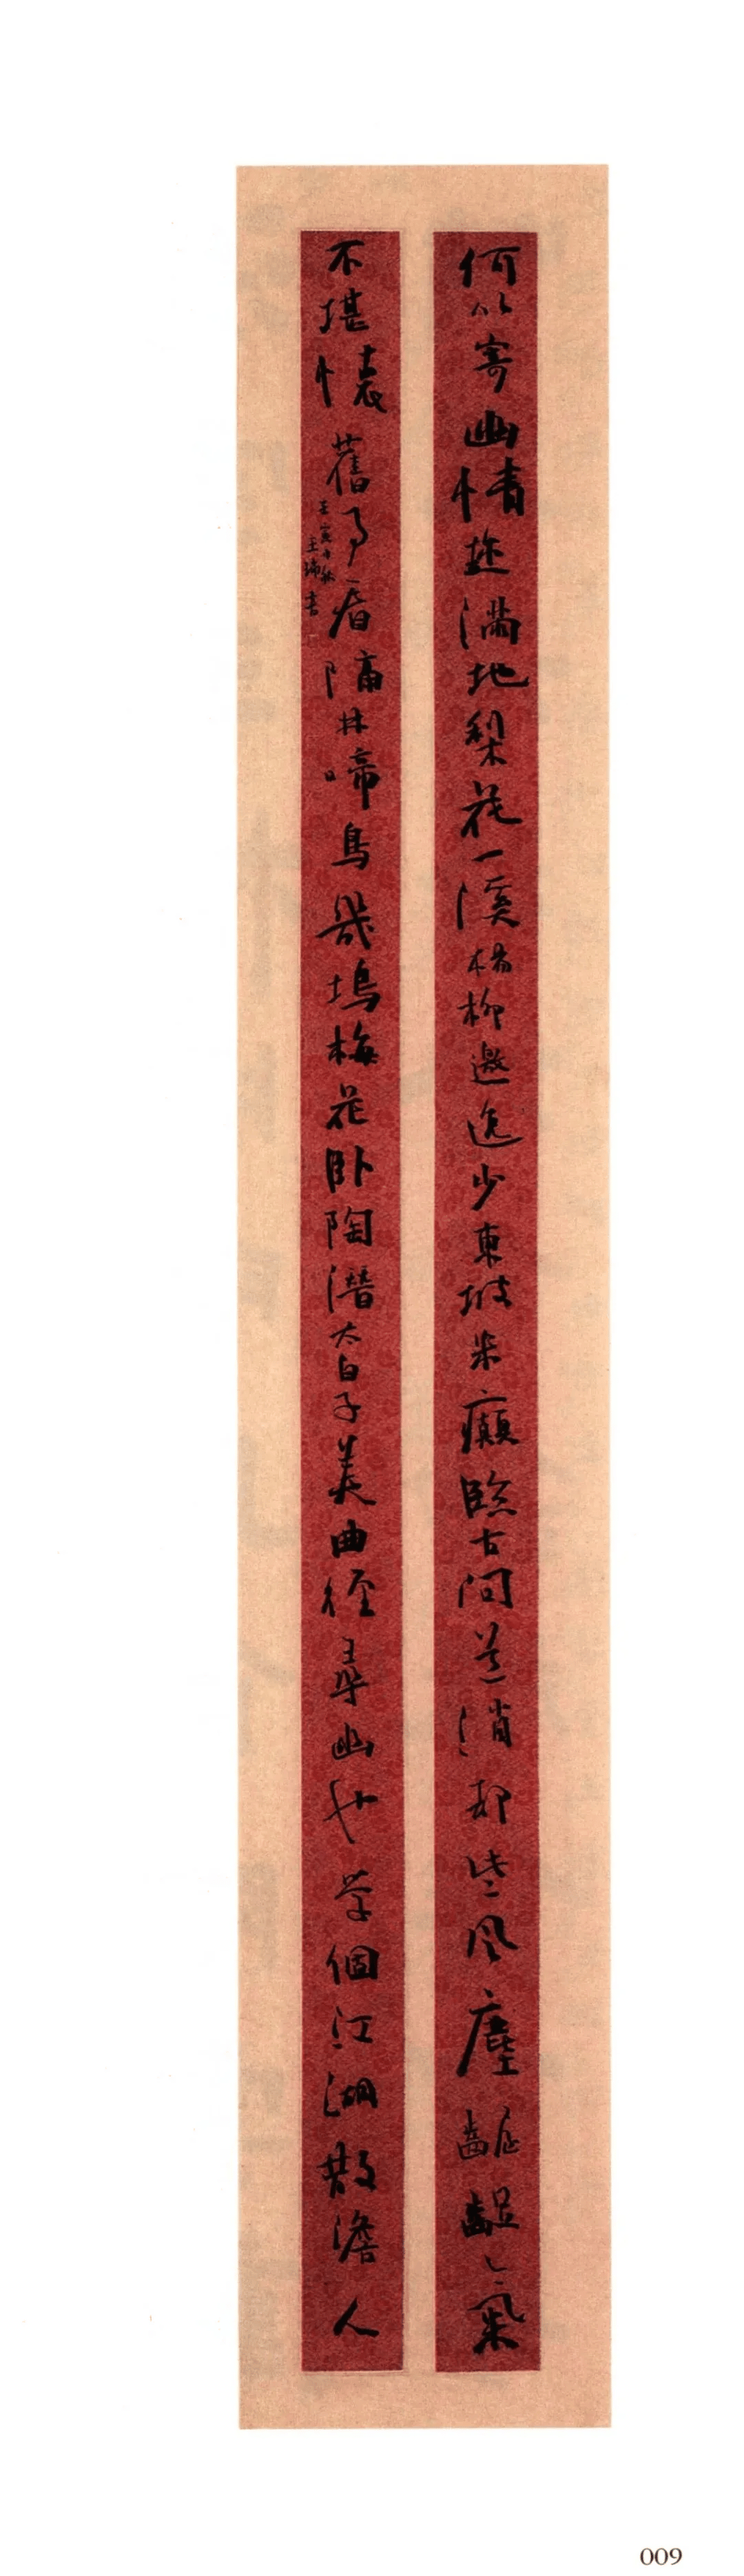 何以寄幽情趁滿地梨花一溪楊柳邀逸少東坡米癲臨古問道消却些風塵齷齪之氣
不堪懷舊事看隔林啼鳥幾塢梅花卧陶潛太白子美曲徑尋幽也學個江湖散澹人
壬寅小秋
王瑞書
009